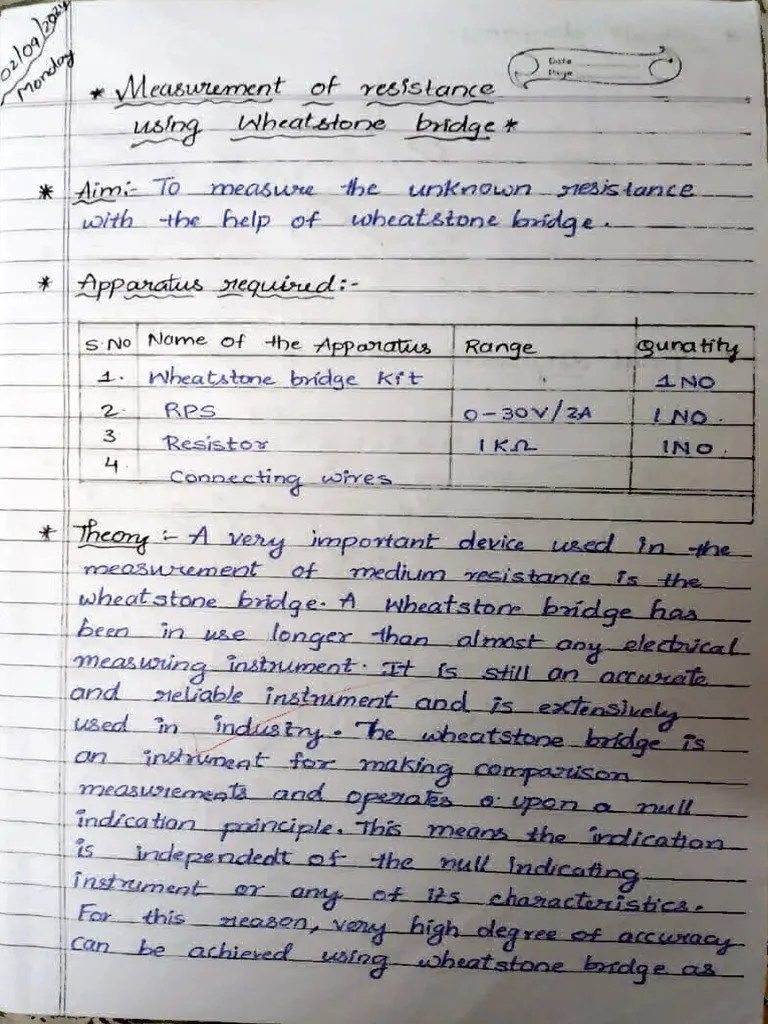 02/09/2024
Monday
Date
Page
* Measurement of resistance
using Wheatstone bridge *
* Aim:- To measure the unknown resistance
with the help of wheatstone bridge.
* Apparatus required:-
S.No Name of the Apparatus Range Qunatity
1. Wheatstone bridge Kit 1 NO
2. RPS 0-30V/2A 1 NO.
3 Resistor 1KΩ 1NO.
4. Connecting wires
* Theory :- A very important device used in the
measurement of medium resistance is the
wheatstone bridge. A wheatstone bridge has
been in use longer than almost any electrical
measuring instrument. It is still an accurate
and reliable instrument and is extensively
used in industry. The wheatstone bridge is
an instrument for making comparison
measurements and operates o. upon a null
indication principle. This means the indication
is independedt of the null indicating
instrument or any of its characteristics.
For this reason, very high degree of accuracy
can be achieved using wheatstone bridge as